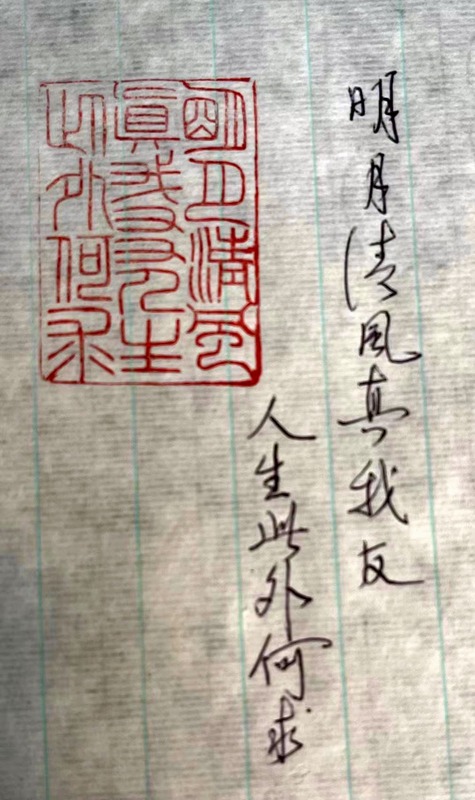 明月清風真我友
人生此外何求
明月清風
真我友人生
此外何求